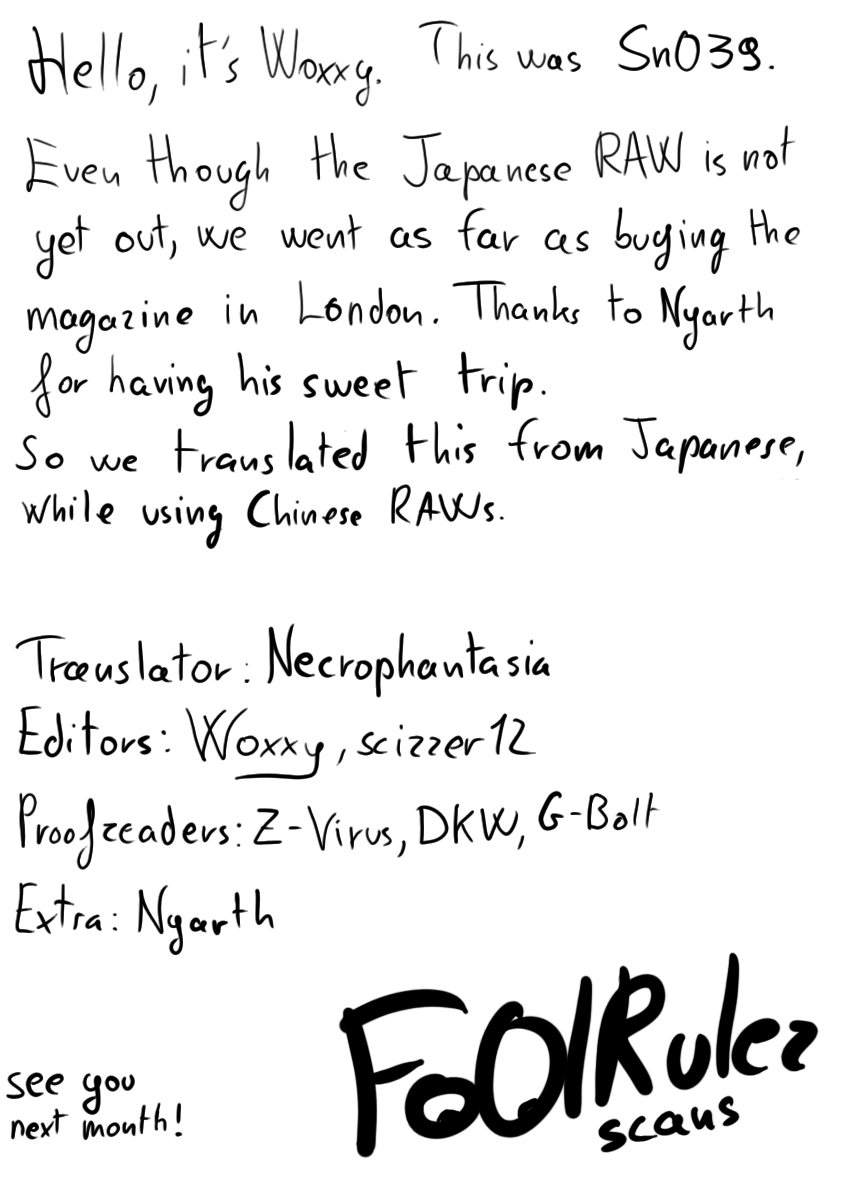 Hello, it's Woxxy. This was Sn039.
Even though the Japanese RAW is not
yet out, we went as far as buying the
magazine in London. Thanks to Nyarth
for having his sweet trip.
So we translated this from Japanese,
while using Chinese RAWs.
Translator: Necrophantasia
Editors: Woxxy, scizzer12
Proofreaders: Z-Virus, DKW, G-Bolt
Extra: Nyarth
see you
next month!
FoOlRulez
scans